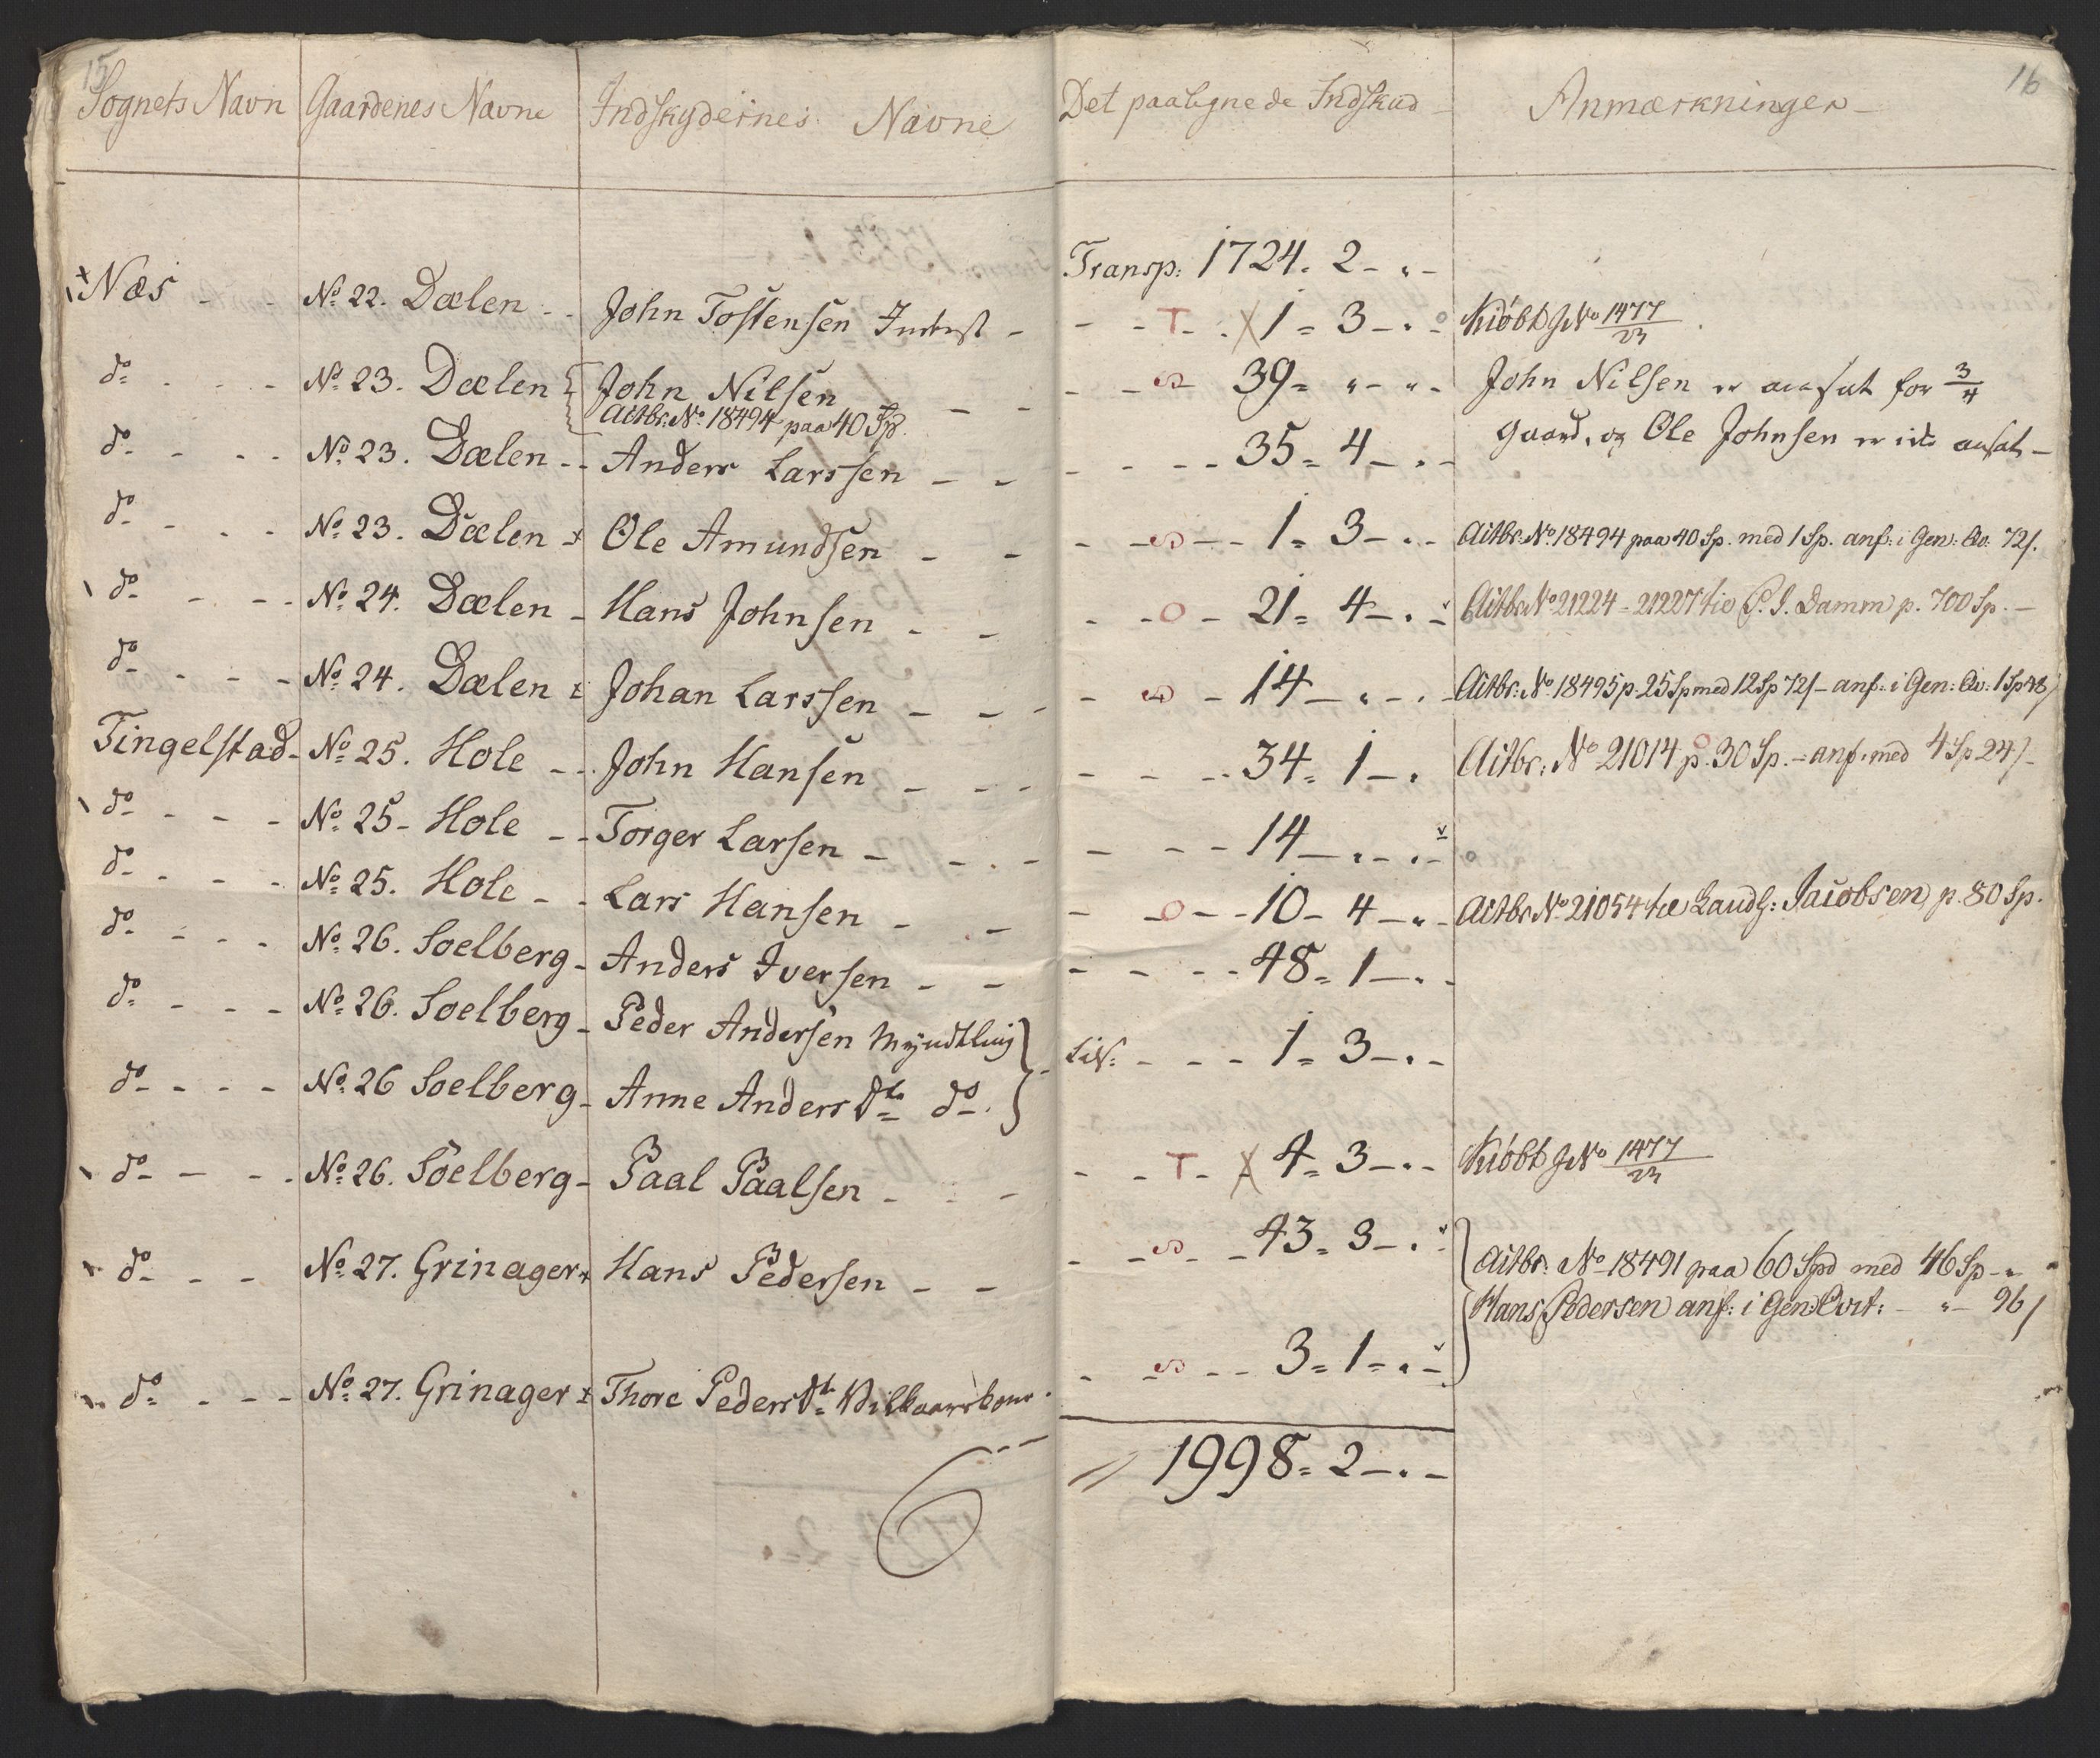 15
16
Sognets Navn Gaardenes Navne Indskydernes Navne Det paalignede Indskud Anmærkninger
Transp: 1724. 2 - " -
Næs - - No 22. Dælen - - John Tostensen - - - T - X 1 = 3 - " - Kiøbt No 1477/23
do - - - No 23. Dælen { John Nilsen - - - - 39 = " - " - John Nilsen er ansat for 3/4
Actbr: No 18494 paa 40 Sp.
Gaard, og Ole Johnsen er ansat -
do - - - No 23. Dælen - - Anders Larssen - - - - - - 35 = 4 - " -
do - - - No 23. Dælen Ole Amundsen - - - - - - 1 = 3 - " - Actbr: No 18494 paa 40 Sp. med 1 Sp. anf: i Gen: Qv: 72 s.
do - - - No 24. Dælen - Hans Johnsen - - - - O - 21 = 4 - " - Actbr No 21224 - 21227 P. I. Damm p. 700 Sp. -
do - - - No 24. Dælen Johan Larssen - - - - - - 14 - " - " - Actbr: No 18495 p. 25 Sp med 12 Sp 72 s - anf: i Gen: Qv: 1 Sp 48 s
Tingelstad - No 25. Hole - - John Hansen - - - - - - 34 = 1 - " Actbr: No 21014 p. 30 Sp. - anf. med 4 Sp 24 s -
do - - - No 25 - Hole - - Torger Larsen - - - - - - 14 - " - " -
do - - - No 25. Hole - - Lars Hansen - - - O - - 10 - 4 - " - Actbr No 21054 Jacobsen p. 80 Sp.
do - - - No 26. Soelberg - Anders Iversen - - - - - - 48 = 1 - " -
do - - - No 26. Soelberg - Peder Andersen Myndtling } - - - - 1 = 3 - " -
do - - - No 26 Soelberg - Anne Anders Dtr do. }
do - - - No 26. Soelberg - Paal Paalsen - - - - - T - X 4 = 3 - " - Kiøbt No 1477/23
do - - - No 27. Grinager Hans Pedersen - - - - - 43 = 3 - " - { Actbr: No 18491 paa 60 Spd med 46 Sp - "
Hans Pedersen anf: i Gen: Qvit: - " - 96 s
do - - - No 27. Grinager Thore Peders Dtr - - - 3 = 1 = " -
1998 = 2 - " -